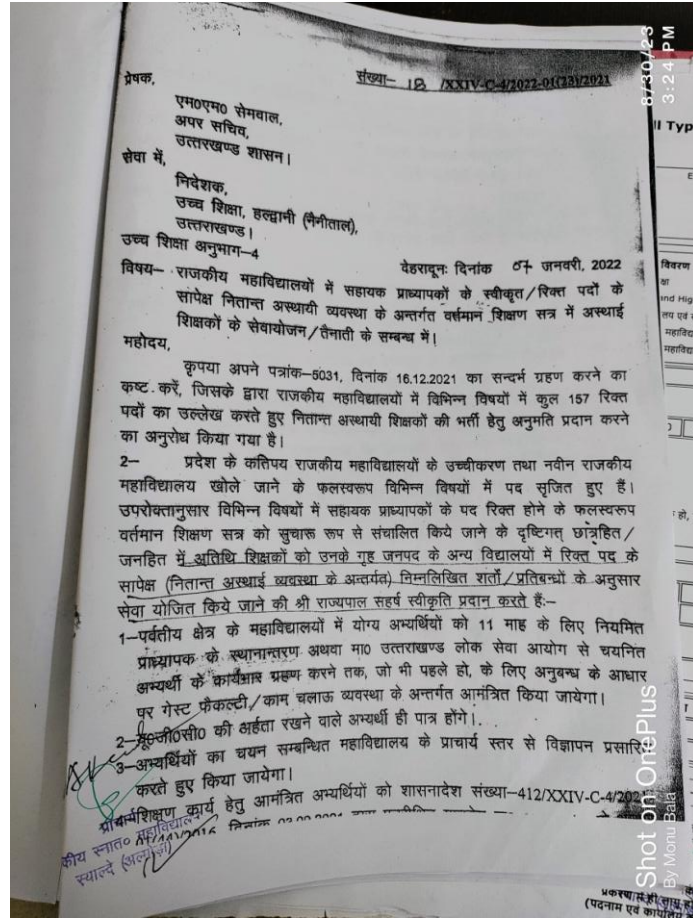 8/30/23
3:24 PM
संख्या– 18 /XXIV-C-4/2022-01(23)/2021
प्रेषक,
एम0एम0 सेमवाल,
अपर सचिव,
उत्तराखण्ड शासन।
सेवा में,
निदेशक,
उच्च शिक्षा, हल्द्वानी (नैनीताल),
उत्तराखण्ड।
उच्च शिक्षा अनुभाग–4
देहरादूनः दिनांक 07 जनवरी, 2022
विषय– राजकीय महाविद्यालयों में सहायक प्राध्यापकों के स्वीकृत/रिक्त पदों के
सापेक्ष नितान्त अस्थायी व्यवस्था के अन्तर्गत वर्तमान शिक्षण सत्र में अस्थाई
शिक्षकों के सेवायोजन/तैनाती के सम्बन्ध में।
महोदय,
कृपया अपने पत्रांक–5031, दिनांक 16.12.2021 का सन्दर्भ ग्रहण करने का
कष्ट करें, जिसके द्वारा राजकीय महाविद्यालयों में विभिन्न विषयों में कुल 157 रिक्त
पदों का उल्लेख करते हुए नितान्त अस्थायी शिक्षकों की भर्ती हेतु अनुमति प्रदान करने
का अनुरोध किया गया है।
2– प्रदेश के कतिपय राजकीय महाविद्यालयों के उच्चीकरण तथा नवीन राजकीय
महाविद्यालय खोले जाने के फलस्वरूप विभिन्न विषयों में पद सृजित हुए हैं।
उपरोक्तानुसार विभिन्न विषयों में सहायक प्राध्यापकों के पद रिक्त होने के फलस्वरूप
वर्तमान शिक्षण सत्र को सुचारू रूप से संचालित किये जाने के दृष्टिगत् छात्रहित/
जनहित में अतिथि शिक्षकों को उनके गृह जनपद के अन्य विद्यालयों में रिक्त पद के
सापेक्ष (नितान्त अस्थाई व्यवस्था के अन्तर्गत) निम्नलिखित शर्तो/प्रतिबन्धों के अनुसार
सेवा योजित किये जाने की श्री राज्यपाल सहर्ष स्वीकृति प्रदान करते हैं:–
1–पर्वतीय क्षेत्र के महाविद्यालयों में योग्य अभ्यर्थियों को 11 माह के लिए नियमित
प्राध्यापक के स्थानान्तरण अथवा मा0 उत्तराखण्ड लोक सेवा आयोग से चयनित
अभ्यर्थी के कार्यभार ग्रहण करने तक, जो भी पहले हो, के लिए अनुबन्ध के आधार
पर गेस्ट फैकल्टी/काम चलाऊ व्यवस्था के अन्तर्गत आमंत्रित किया जायेगा।
2–यू0जी0सी0 की अर्हता रखने वाले अभ्यर्थी ही पात्र होंगे।
3–अभ्यर्थियों का चयन सम्बन्धित महाविद्यालय के प्राचार्य स्तर से विज्ञापन प्रसारित
करते हुए किया जायेगा।
शिक्षण कार्य हेतु आमंत्रित अभ्यर्थियों को शासनादेश संख्या–412/XXIV-C-4/2021
प्राचार्य
कीय स्नात० महाविद्यालय
स्याल्दे (अल्मोड़ा)
Shot on OnePlus
By Monu Bala
ll Typ
विवरण
(पदनाम एवं